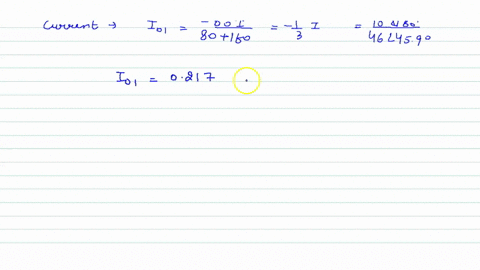 Current → I01 = -00I / 80+160 = -1/3 I = 10∠180 / 46∠45.90
I01 = 0.217